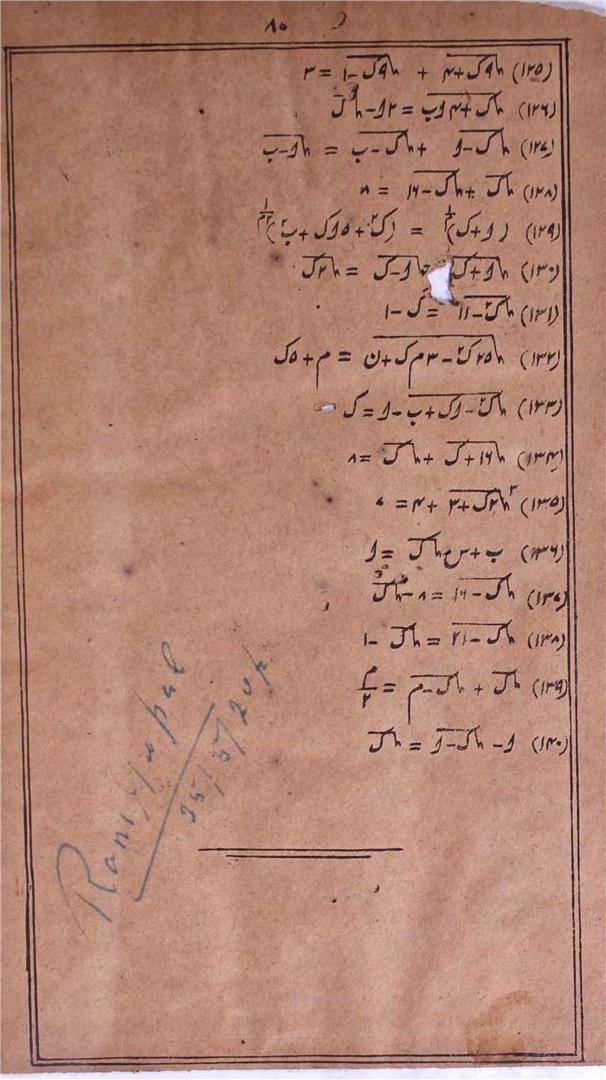 ۸۰
(۱۲۵) √۹ک+۴ + √۹ک-۱ = ۳
(۱۲۶) √ک+۴اب = ۲ا-√ک
(۱۲۷) √ک-ا + √ک-ب = √ا-ب
(۱۲۸) √ک + √ک-۱۶ = ۸
(۱۲۹) (ا+ک)^(۱/م) = (ک۲+۵اک+ب۲)^(۱/۲م)
(۱۳۰) √ا+ک √ا-ک = √۲ک
(۱۳۱) √ک۲-۱۱ = ک-۱
(۱۳۲) √۲۵ک۲-۳م ک+ن = م+۵ک
(۱۳۳) √ک۲-اک+ب-ا = ک
(۱۳۴) √۱۶+ک + √ک = ۸
(۱۳۵) ۳√۲ک+۳ +۴ = ۷
(۱۳۶) ب+س√ک = ا
(۱۳۷) √ک-۱۶ = ۸-√ک
(۱۳۸) √ک-۲۱ = √ک -۱
(۱۳۹) √ک + √ک-م = م/۲
(۱۴۰) ا-√ک-ا = √ک
Ram Gopal
25/5/20